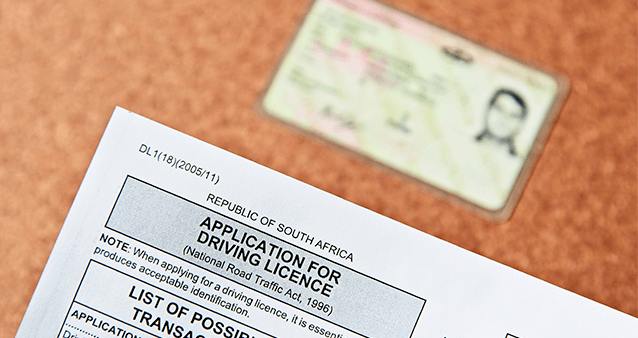 DL1(18)(2005/11)
REPUBLIC OF SOUTH AFRICA
APPLICATION FOR
DRIVING LICENCE
(National Road Traffic Act, 1996)
NOTE: When applying for a driving licence, it is
produces acceptable identification.
LIST OF
APPLICATION